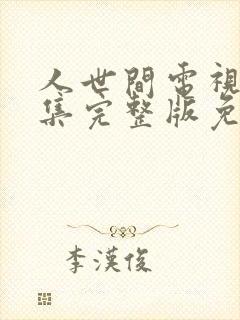 人世間電視
集完整版免
李漢俊